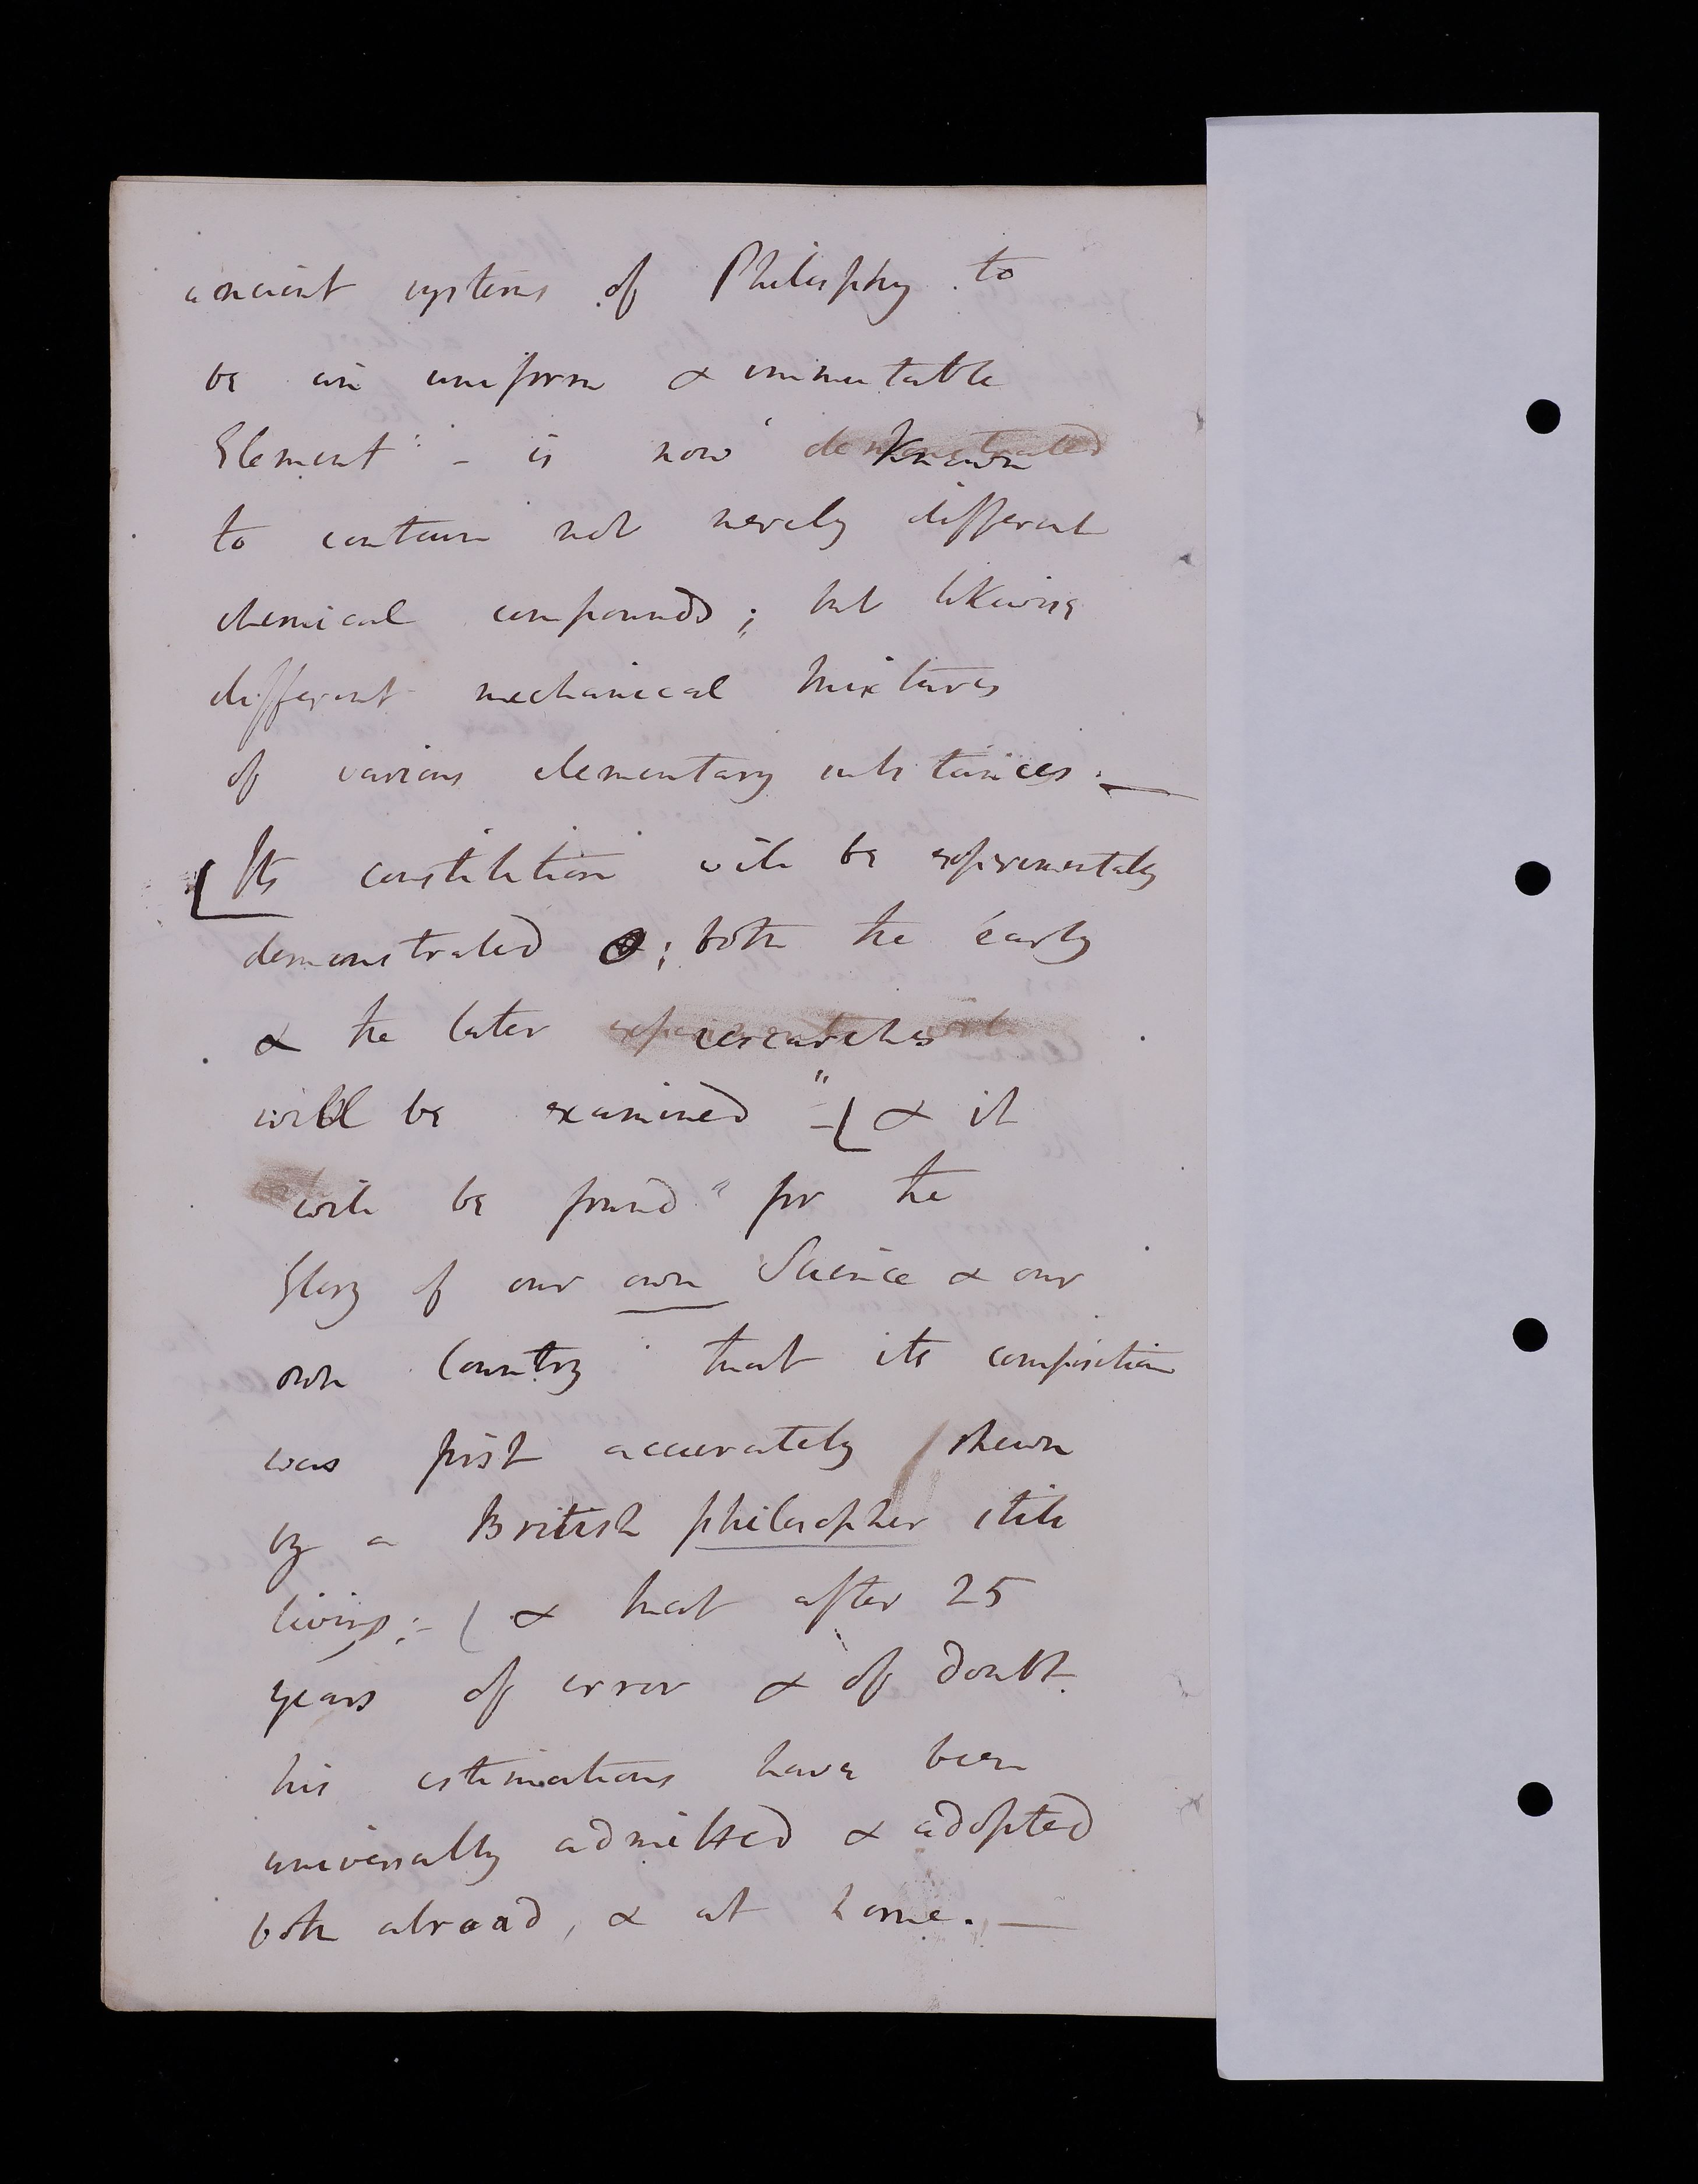 ancient systems of Philosphy to
be an uniform & immutable
Element" - is now demonstrated known
to contain not merely different
chemical compounds; but likewise
different mechanical mixtures
of various elementary substances. —
[Its constitution will be experimentally
demonstrated; both the early
& the later experiments researches
will be examined" - [& it
will be found" for the
Glory of our own Science & our
own Country that its composition
was first accurately shewn
by a British philosopher still
living; - (& that after 25
years of error & of doubt.
his estimations have been
universally admitted & adopted
both abroad, & at home. —